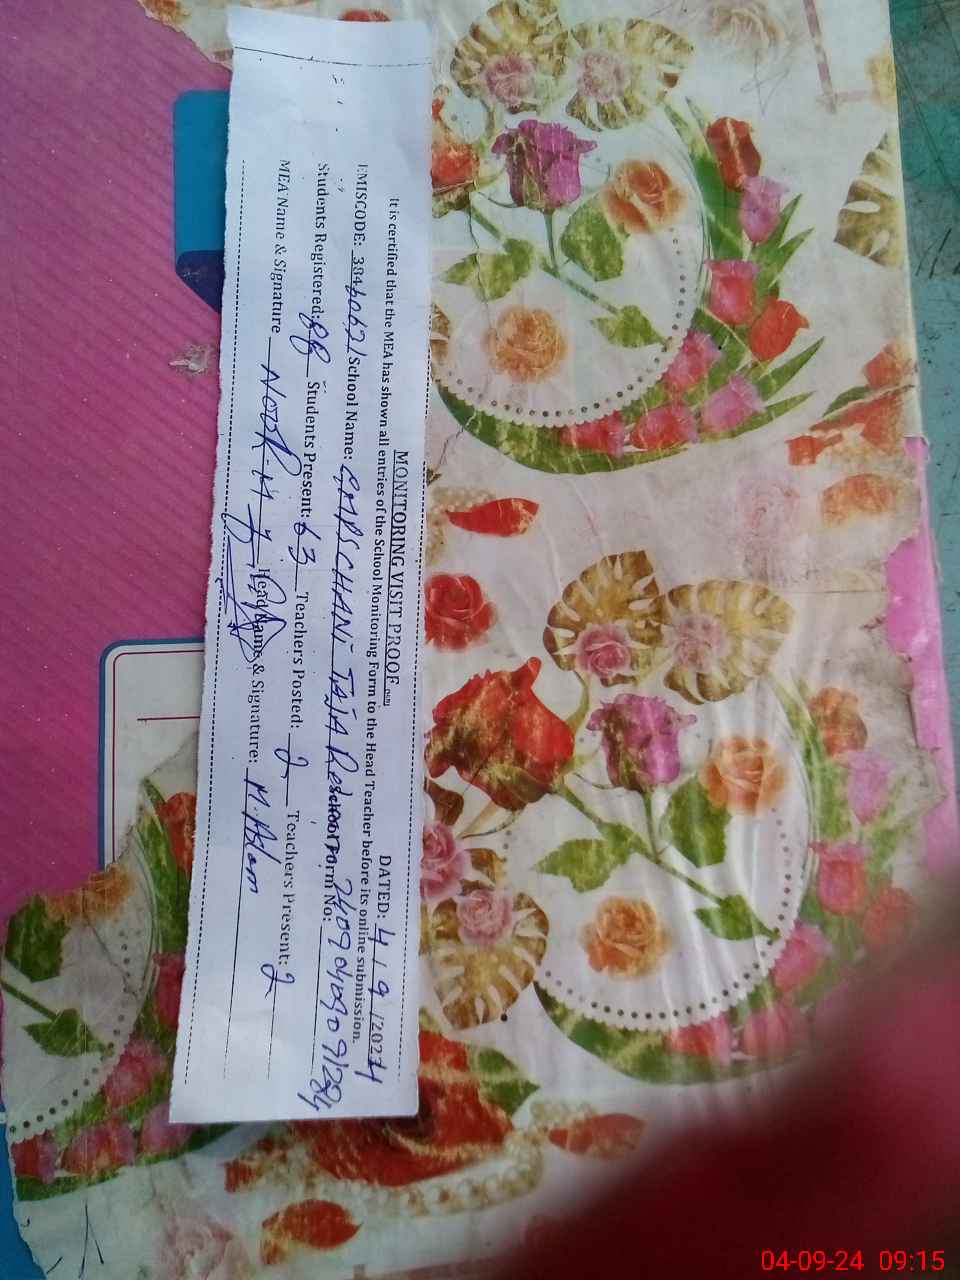 MONITORING VISIT PROOF DATED: 4 / 9 /2024
It is certified that the MEA has shown all entries of the School Monitoring Form to the Head Teacher before its online submission.
EMISCODE: 38460621 School Name: GMPS CHANI TAJA Form No:
Students Registered: 88 Students Present: 63 Teachers Posted: 2 Teachers Present: 2
MEA Name & Signature Noor. M Head Name & Signature: M. Aslam
04-09-24 09:15